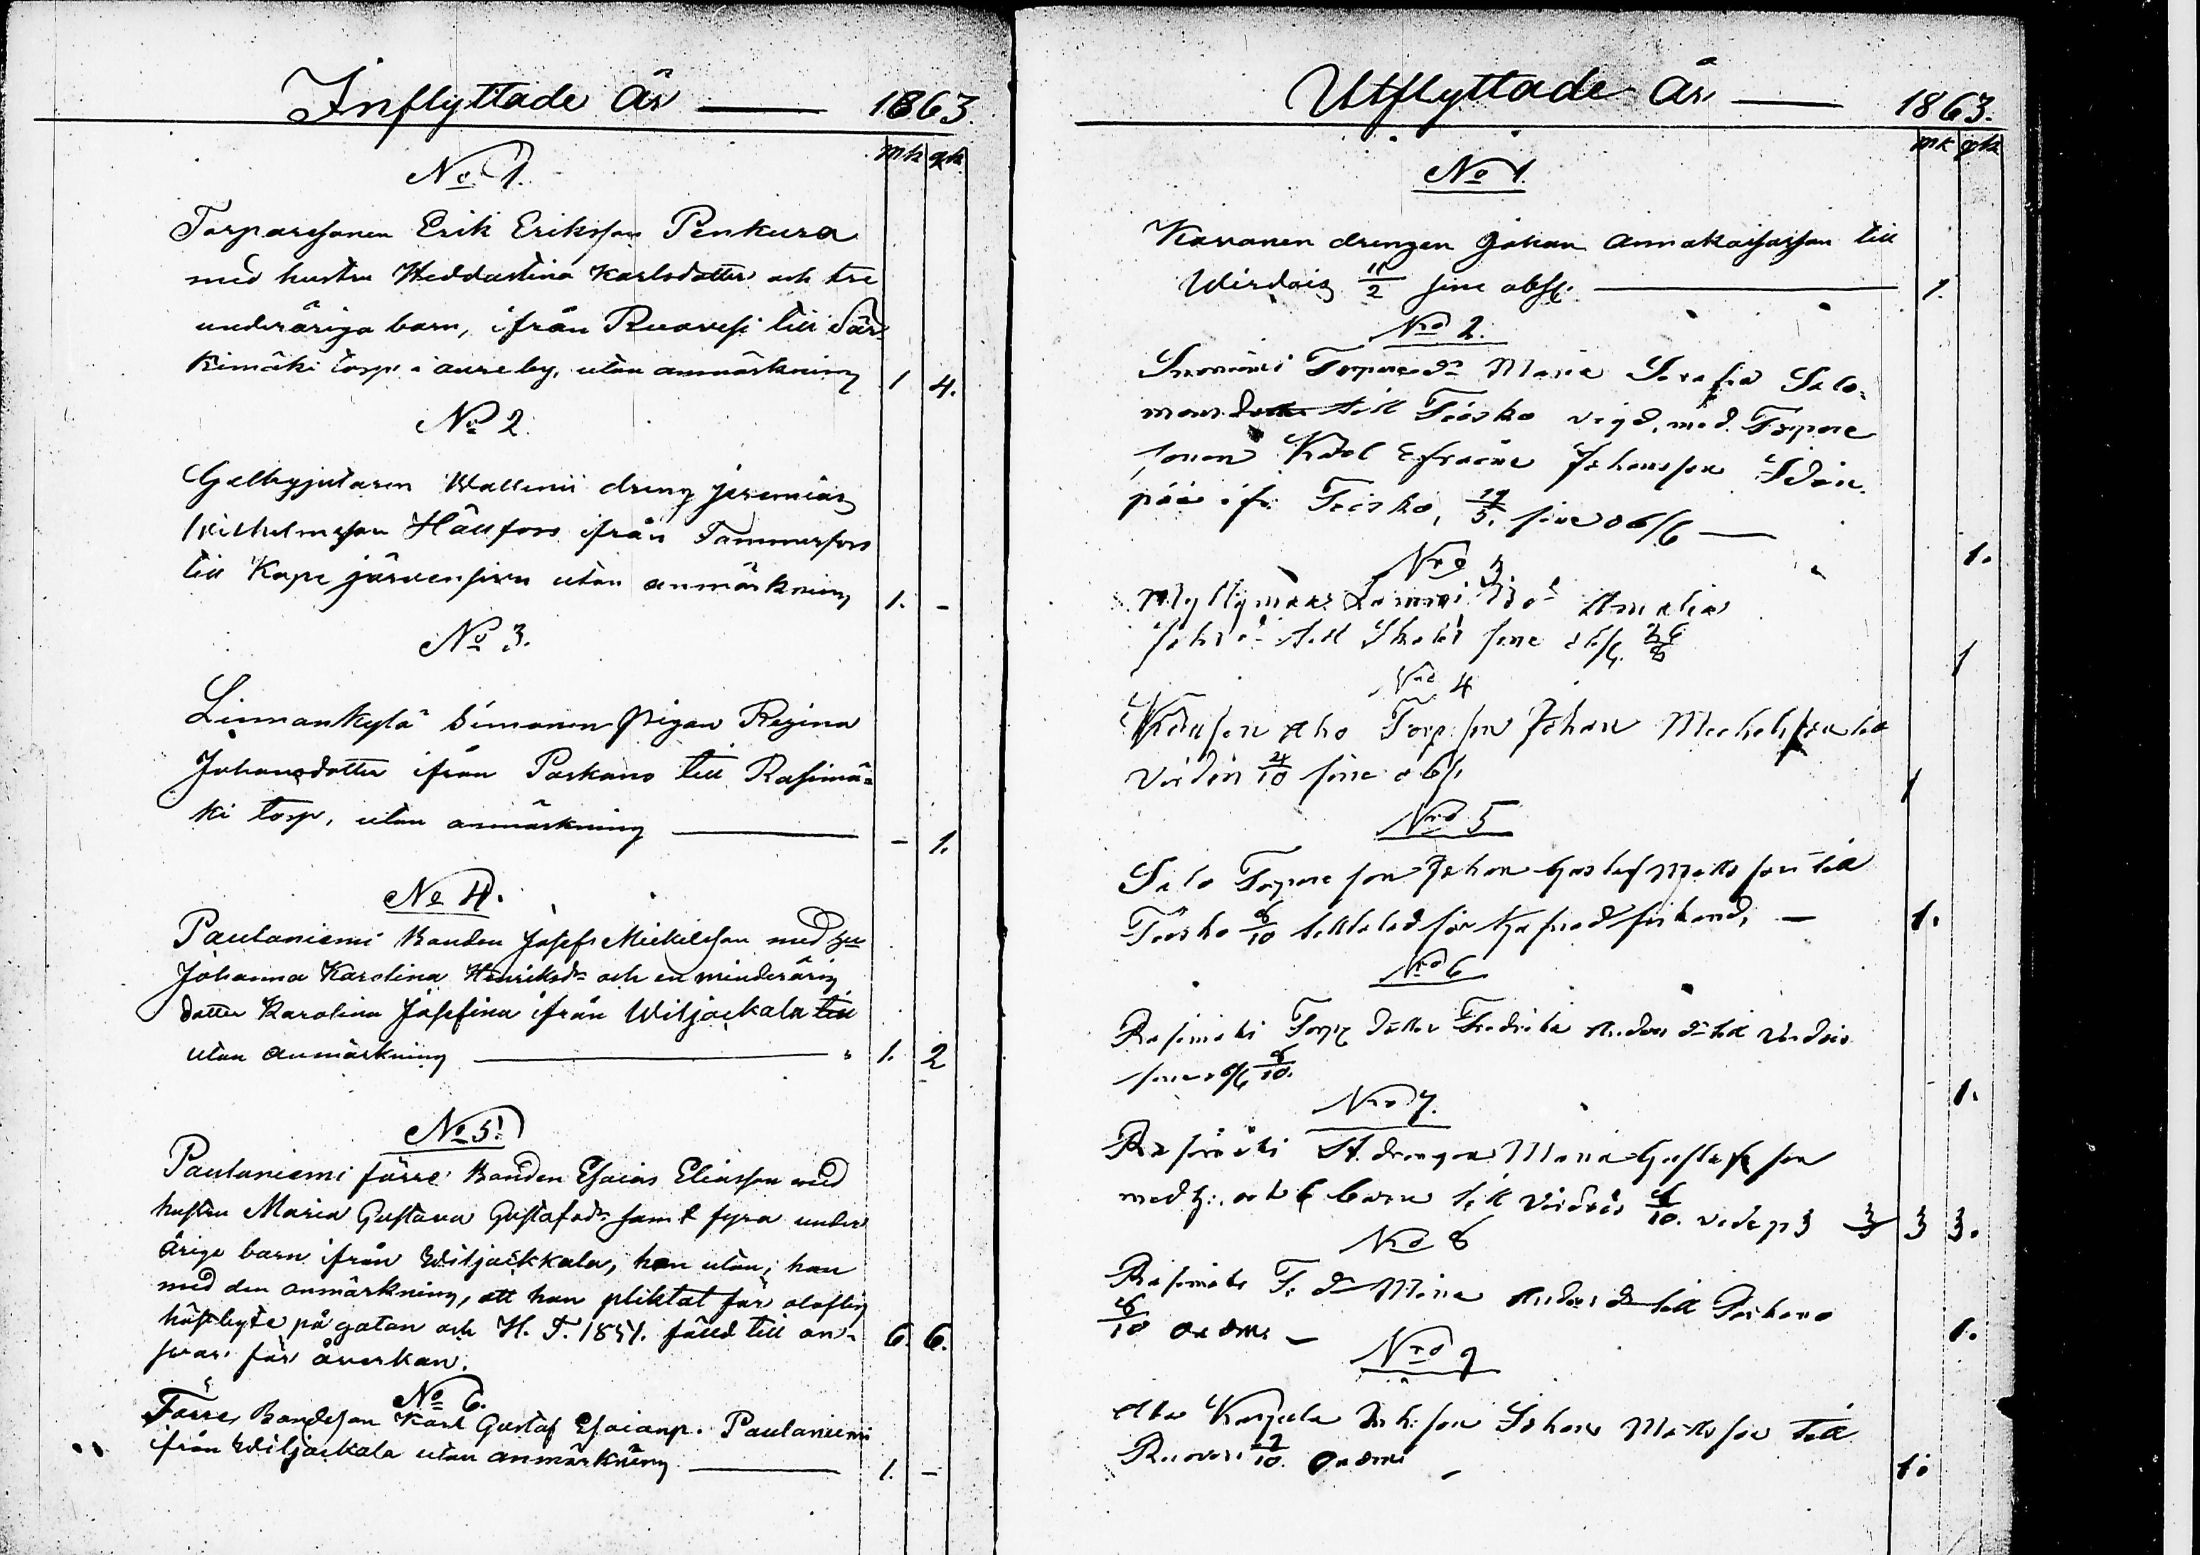 Inflyttade År — 1863.
mk qk
No 1.
Torparesonen Erik Eriksson Penkura
med hustru Heddastina Karlsdotter och tre
underåriga barn, ifrån Ruovesi till Sär-
kimäki torp i aureby, utan anmärkning 1 4.
No 2.
Gelbgjutaren Wallenii dreng Jeremias
Wilhelmsson Hällfors ifrån Tammerfors
till Kape järvensivu utan anmärkning 1. -
No 3.
Linnankylä Simonen pigan Regina
Johansdotter ifrån Parkano till Rasimä-
ki torp, utan anmärkning — - 1.
No 4.
Paulaniemi Banden Josef Mickelsson med hu
Johanna Karolina Henriksdr och en minderårig
dotter Karolina Josefina ifrån Wiljackala till
utan anmärkning — 1. 2
No 5.
Paulaniemi förre Banden Esaias Eliasson med
hustru Maria Gustava Gustafsdr samt fyra under
årige barn ifrån Wiljackkala, hon utan, han
med den anmärkning, att han pliktat för oloflig
hästbyte på gatan och H. T. 1857. fälld till an-
svar för åverkan. 6. 6.
No 6.
Förre Bondeson Karl Gustaf Esaiasp. Paulaniemi
ifrån Wiljackala utan anmärkning — 1. -
Utflyttade År — 1863.
mk qk
No 1.
Kavanen drengen Johan Annakaisasson till
Wirdois 11/2 sine obst. — 1.
Nro 2.
Torparedr Maria Serafia Salo-
monsdotter till Teisko vigd med Torpare
sonen Karl Efraim Johansson
ifr. Teisko, sine obst —
1.
Nro 3
Amalia
till sine obst. 26/8
1
Nro 4
Aho Torp. son Johan Mickelsson till
Virdois 4/10 sine obst.
1
Nro 5
Salo Torpare son Johan Gustaf Mattsson till
Teisko 8/10 — 1.
Nro 6
Rasimäki Torp dotter Fredrika Anders dr till Virdois
sine obst 8/10.
1.
Nro 7.
Rasimäki St. drengen Gustafsson
med h. och 6 barn till Virdois 8/10. 3 3 3.
Nro 8
Rasimäki T. dr Maria Anders dr till Parkano
8/10 —
1.
Nro 9
son Johan Mattsson till
Ruovesi
1.